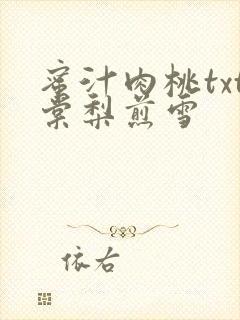 蜜汁肉桃txt
棠梨煎雪
依右